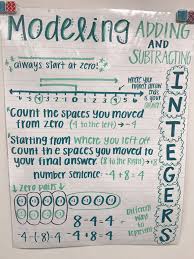 Modeling ADDING
AND
SUBTRACTING
INTEGERS
always start at zero!
where you
your
Count the spaces you moved
from zero (4 to the left) → -4
Starting from where you left off
count the spaces you moved to
your final answer. (8 to the right) → +8
number sentence -4 + 8 = 4
zero pairs
Different
ways to
represent
8 - 4 = 4
-4 + 8 = 4
-4 - (-8) = 4